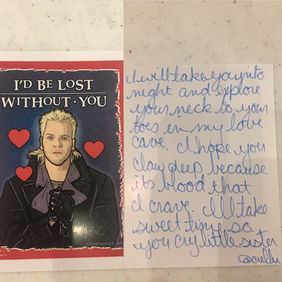 I'D BE LOST
WITHOUT · YOU
I will take you into
night and explore
your neck to your
toes in my love
cave. I hope you
claw deep because
its blood that
I crave. I'll take
sweet time so
you cry little sister